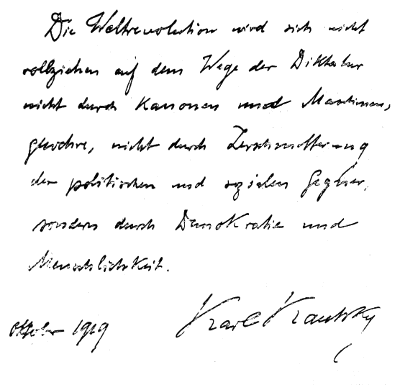 Die Weltrevolution wird sich nicht
vollziehen auf dem Wege der Diktatur
nicht durch Kanonen und Maschinen,
gewehre, nicht durch Zerschmetterung
der politischen und sozialen Gegner,
sondern durch Demokratie und
Menschlichkeit.
Oktober 1919 Karl Kautsky